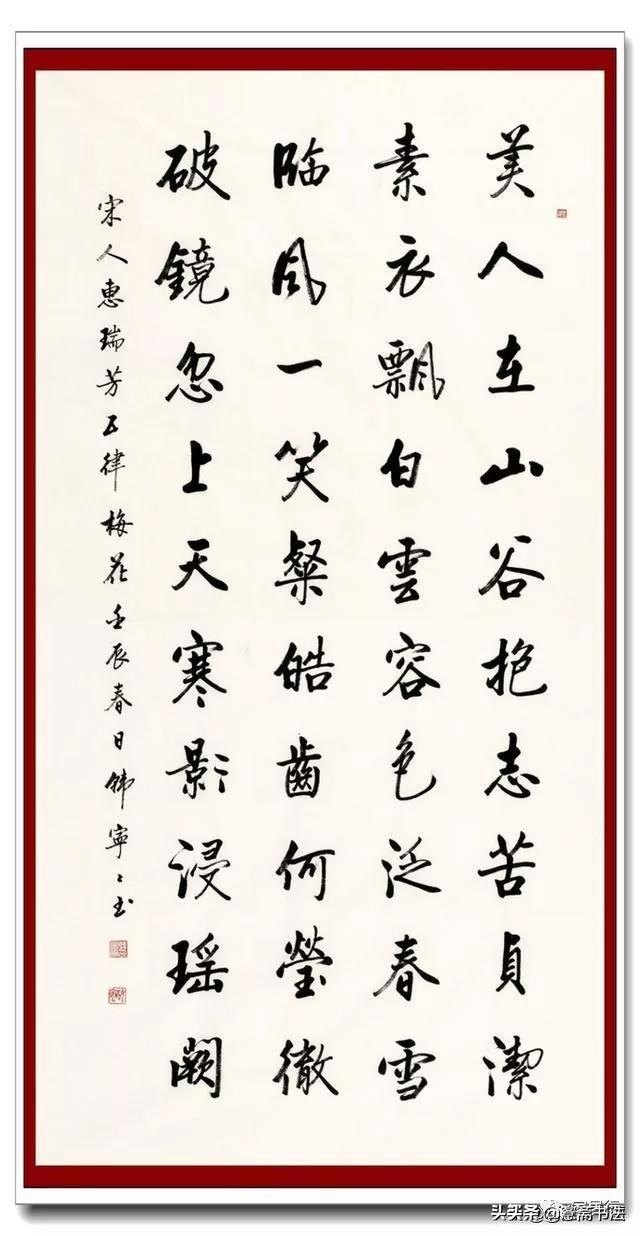 美人在山谷抱志苦貞潔
素衣飄白雲容色泛春雪
臨風一笑粲皓齒何瑩徹
破鏡忽上天寒影浸瑶闕
宋人惠瑞芳五律梅花壬辰春日韩寧〻书
头条 @斋书法